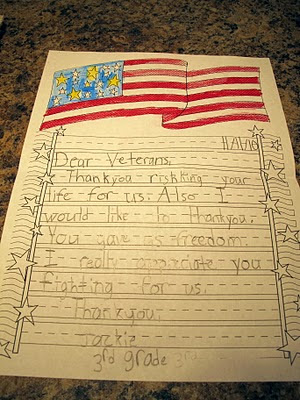 Dear Veterans,
Thankyou riskking your
life for us. Also I
would like to thankyou.
You gave us freedom.
I really appriciate you
fighting for us.
Thankyou,
Jackie
3rd grade